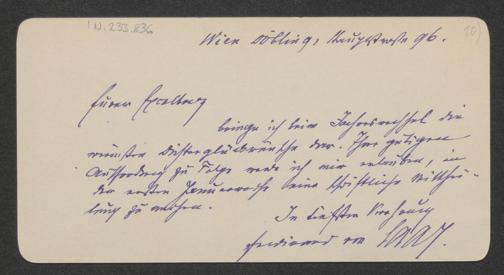 IN. 233.836
10)
Wien Döbling, Hauptstraße 96.
Eurer Excellenz
bringe ich beim Jahreswechsel die
wärmsten Glückwünsche dar. Ihrer gütigen
Aufforderung zu Folge werde ich mir erlauben, in
der ersten Januarwoche eine schriftliche Mitthei-
lung zu machen.
In tiefster Verehrung
Ferdinand von Saar.